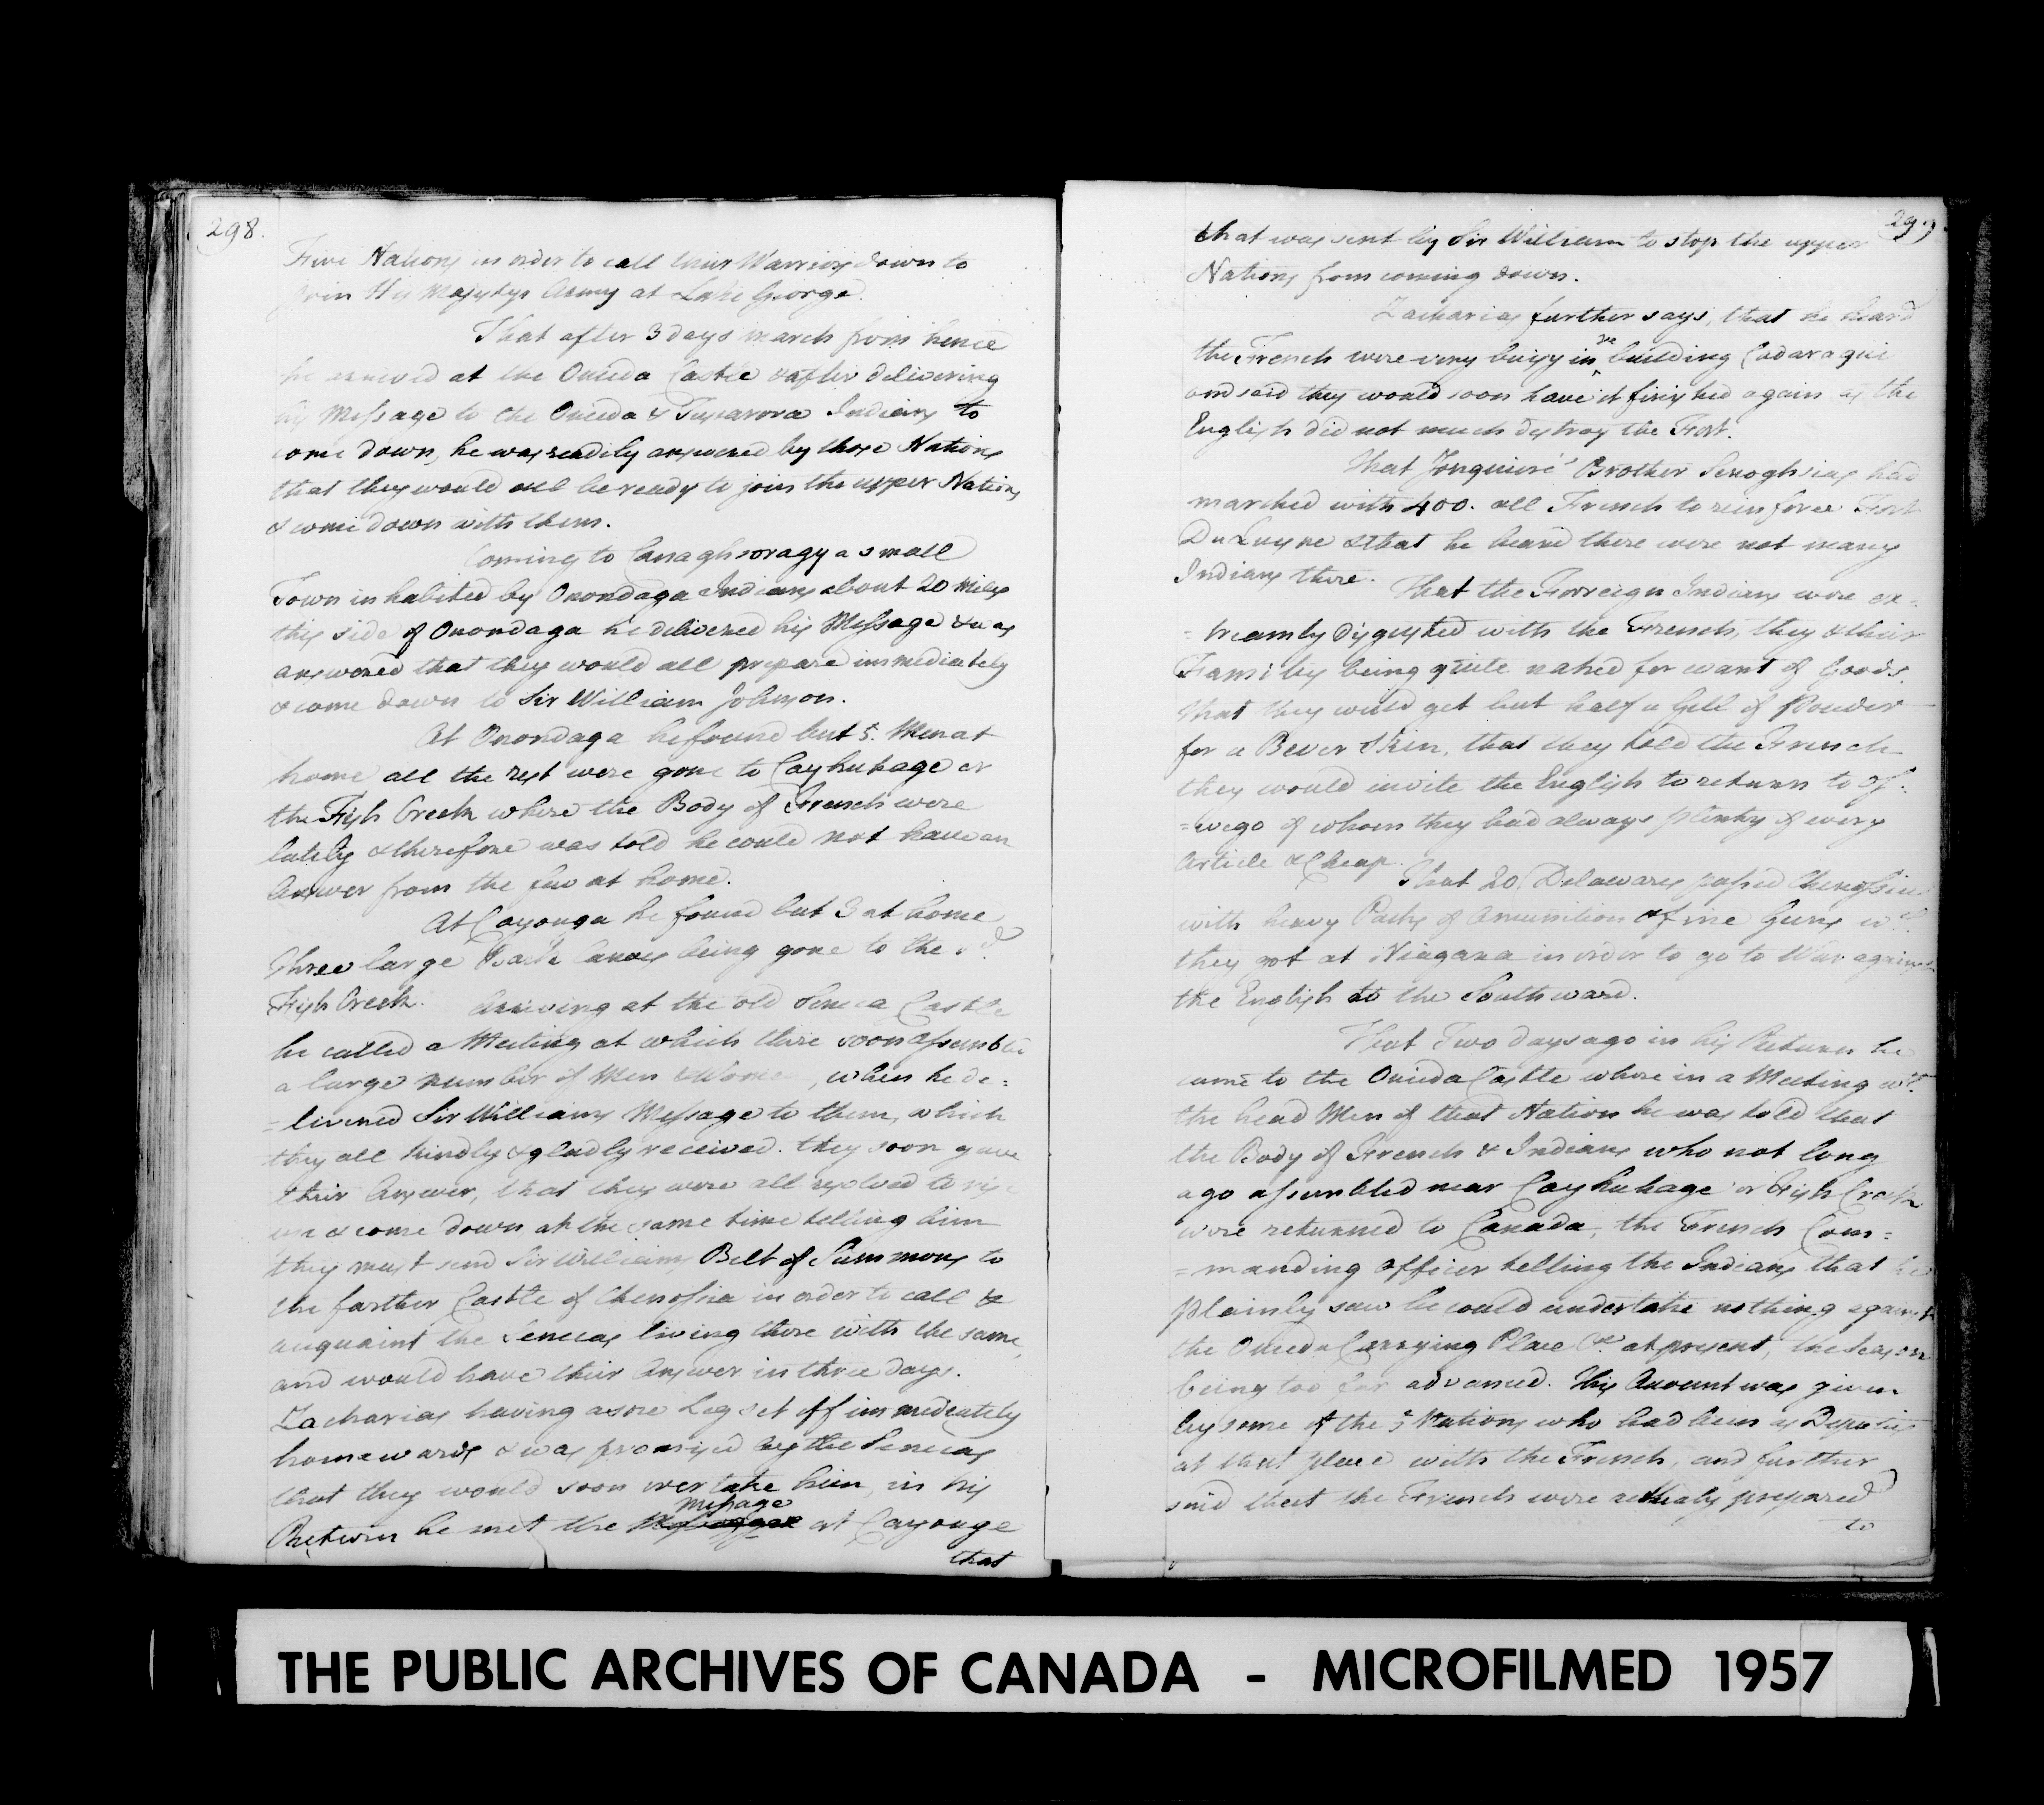 298.
Five Nations in order to call their Warriors down to
join His Majestys Army at Lake George.
That after 3 days march from hence
he arrived at the Oneida Castle & after delivering
his Message to the Oneida & Tuscarora Indians to
come down, he was readily answered by those Nations
that they would all be ready to join the upper Nations
& come down with them.
Coming to Canaghsoragy a small
Town inhabited by Onondaga Indians about 20 Miles
this side of Onondaga he delivered his Message & was
answered that they would all prepare immediately
& come down to Sir William Johnson.
At Onondaga he found but 5. Men at
home all the rest were gone to Cayhuhage or
the Fish Creek where the Body of French were
lately & therefore was told he could not have an
Answer from the few at home.
At Cayouga he found but 3 at home
three large Bark Canoes being gone to the sd.
Fish Creek. Arriving at the old Seneca Castle
he called a Meeting at which there soon assembled
a large number of Men & Women, when he de=
=livered Sir Williams Message to them, which
they all kindly & gladly received. they soon gave
their Answer, that they were all resolved to rise
up & come down, at the same time telling him
they must send Sir Williams Belt of Summons to
the farther Castle of Chenossia in order to call &
acquaint the Senecas living there with the same,
and would have their Answer in three days.
Zacharias having a sore Leg set off immediately
homewards & was promised by the Senecas
that they would soon overtake him, in his
Return he met the Message at Cayouga
that
299
that was sent by Sir William to stop the upper
Nations from coming down.
Zacharias further says, that he heard
the French were very buisy in re building Cadaraqui
and said they would soon have it finished again as the
English did not much destroy the Fort.
That Jonquiere's Brother Senoghsias had
marched with 400. all French to reinforce Fort
DuQuesne & that he heard there were not many
Indians there. That the Forreign Indians were ex=
=treamly disgusted with the French, they & their
Familys being quite naked for want of Goods.
that they could get but half a Gill of Powder
for a Bever Skin, that they told the French
they would invite the English to return to Os=
=wego of whom they had always plenty of every
Article & Cheap. That 20 Delawares passed Chenossia
with heavy Packs of Amunition & fine Guns wch.
they got at Niagara in order to go to War against
the English to the Southward.
That Two days ago in his Return he
came to the Oneida Castle where in a Meeting wth.
the head Men of that Nation he was told that
the Body of French & Indians who not long
ago assembled near Cayhuhage or Fish Creek
were returned to Canada, the French Com=
=manding officer telling the Indians that he
plainly saw he could undertake nothing against
the Oneida Carrying Place &c. at present, the Season
being too far advanced. This Account was given
by some of the 5 Nations who had been as Deputies
at that place with the French, and further
said that the French were actualy prepared
to
THE PUBLIC ARCHIVES OF CANADA - MICROFILMED 1957